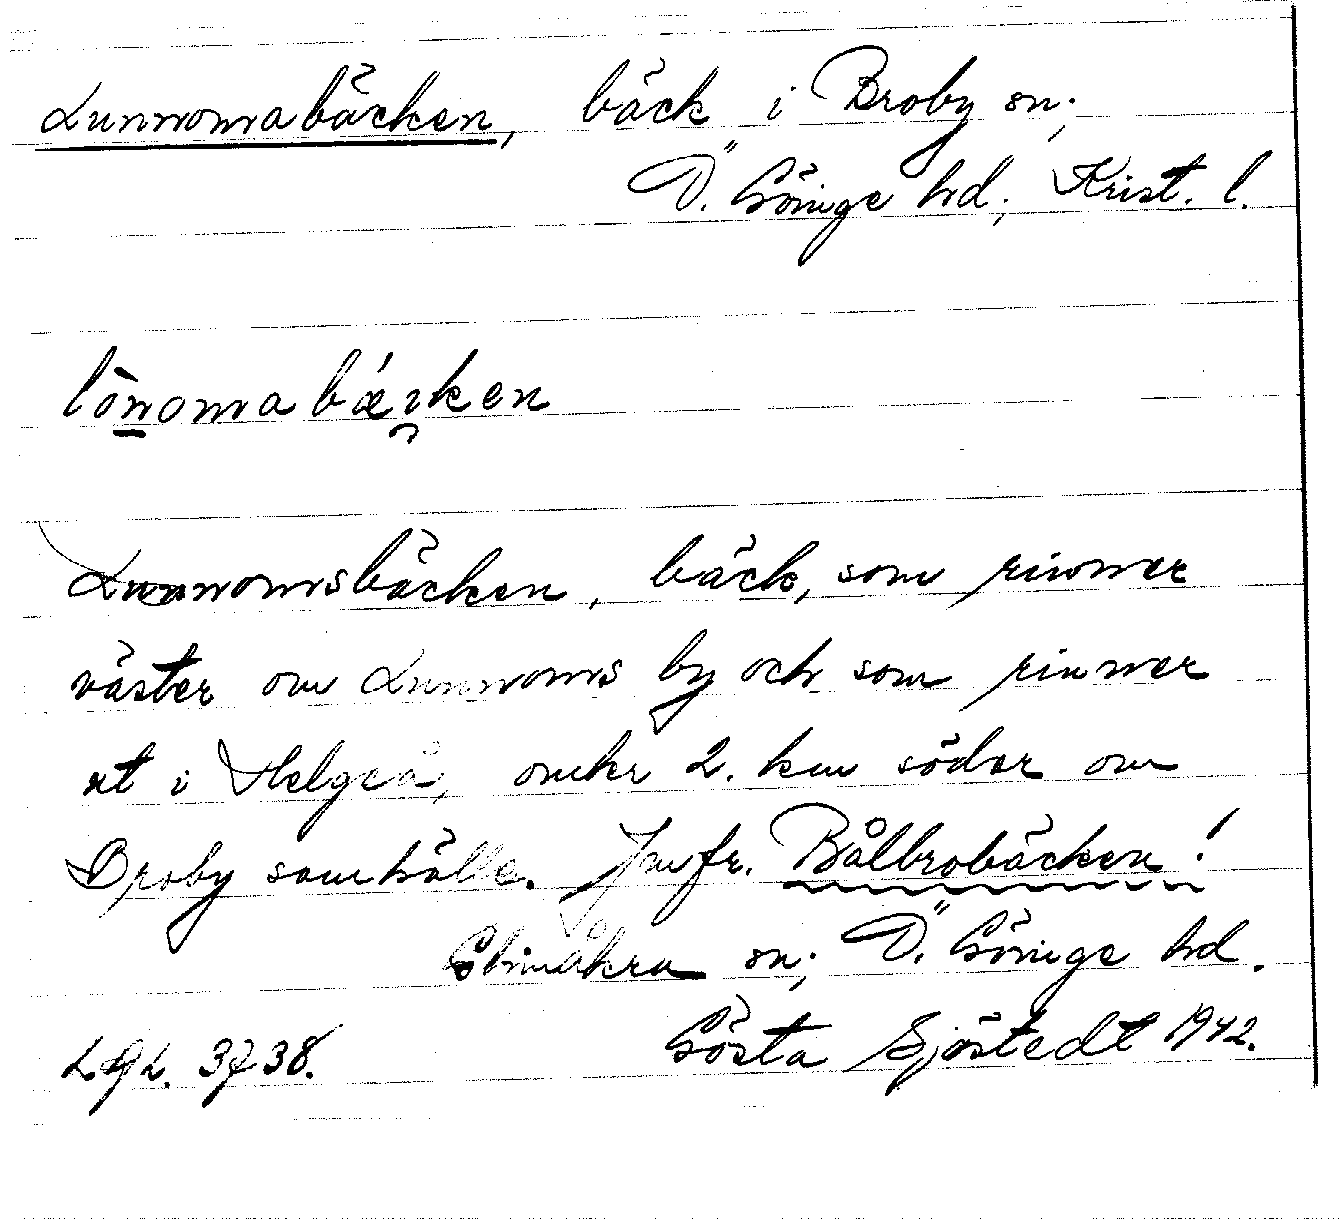 Lunnomabäcken, bäck i Broby sn;
Ö. Göinge hd; Krist. l.
lònomabǽɩken
Lunnomsbäcken, bäck, som rinner
väster om Lunnoms by och som rinner
ut i Helgeå, omkr 2. km söder om
Broby samhälle. Jmfr. Bålbrobäcken!
Glimåkra sn; Ö. Göinge hd.
Gösta Sjöstedt 1942.
LAL. 3738.